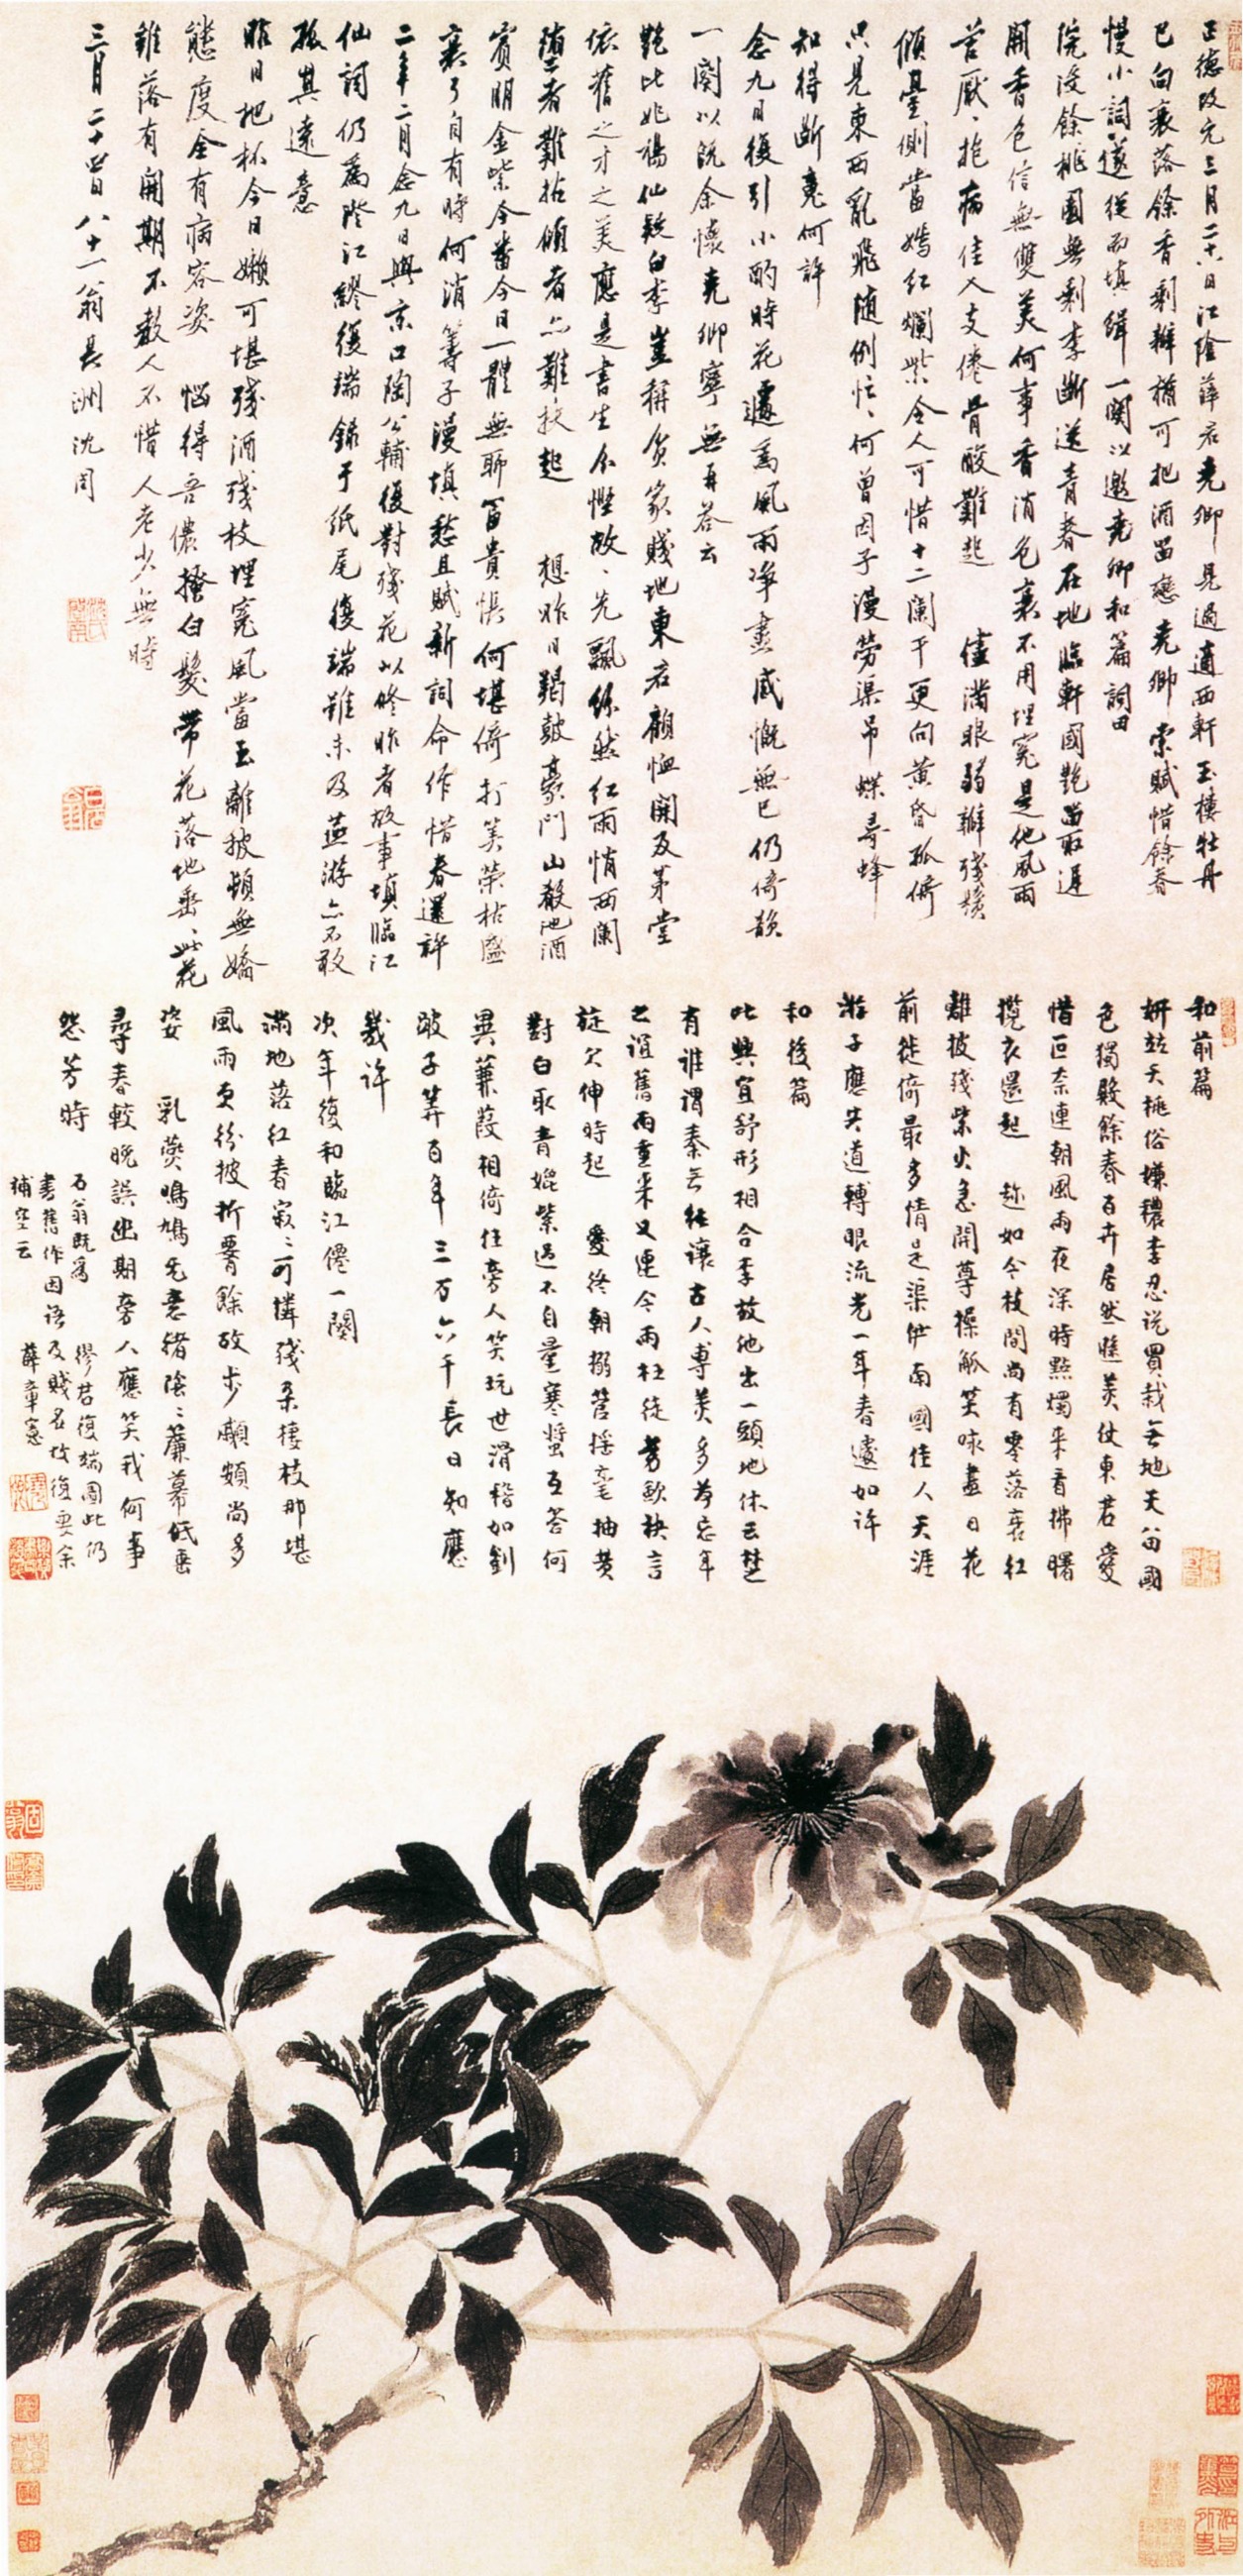 正德改元三月二十八日江陰薛君堯卿見過適西軒玉樓牡丹
已向衰落餘香剩瓣猶可把酒留戀堯卿索賦惜餘春
慢小詞遂從而填緝一闋以邀堯卿和篇詞曰
院沒餘桃園無剩李斷送青春在地臨軒國艷留取遲
開香色信無雙美何事香消色衰不用埋冤是他風雨
苦厭厭抱病佳人支倦骨酸難起 儘滿眼弱瓣殘鬚
傾臺側當嫣紅爛紫令人可惜十二闌干更向黃昏孤倚
只見東西亂飛隨例忙忙何曾因子漫勞渠弔蝶尋蜂
知得斷魂何許
念九日復引小酌時花遽為風雨凈盡感慨無已仍倚韻
一闋以洗余懷堯卿寧無再答云
艷比姚楊仙疑白李豈稱貧家賤地東君顧恤開及茅堂
依舊之才之美應是書生分慳故故先飄紛然紅雨悄西闌
墮者難拈傾者亦難扶起 想昨日羯鼓豪門山殽池酒
賓朋金紫今番今日一體無聊富貴悞何堪倚打筭榮枯盛
衰了自有時何消籌子漫填愁且賦新詞命作惜春還許
二年二月念九日與京口陶公輔復對殘花以修昨者故事填臨江
仙詞仍為澄江繆復端錄于紙尾復端雖未及茲游亦不敢
孤其遠意
昨日把杯今日嬾可堪殘酒殘枝埋冤風當玉離披頓無嬌
態度全有病容姿 惱得吾儂搔白髮帶花落地垂垂此花
雖落有開期不教人不惜人老少無時
三月二十四日八十一翁長洲沈周
和前篇
妍站夭桃俗嫌穠李忍說買栽無地天留國
色獨殿餘春百卉居然雌美仗東君愛
惜叵奈連朝風雨夜深時點燭來看拂曙
攬衣還起 趁如今枝間尚有零落衰紅
離披殘紫火急開尊操觚笑咏盡日花
前徙倚最多情是渠伊南國佳人天涯
游子應共道轉眼流光一年春遽如許
和後篇
此興宜舒形相合李放他出一頭地休云楚
有誰謂秦無往讓古人專美多為忘年
之誼舊雨重來又連今雨枉徒勞歐抉言
旋欠伸時起 愛終朝搦管揺毫抽黃
對白取青媲紫過不自量寒螿互答何
異蒹葭相倚任旁人笑玩世滑稽如劉
跛子筭百年三万六千長日知應
幾許
次年復和臨江僊一闋
滿地落紅春寂寂可憐殘朵棲枝那堪
風雨更紛披折腰餘故步顑頷尚多
姿 乳燕鳴鳩無意緒陰陰簾幕低垂
尋春較晚誤幽期旁人應笑我何事
怨芳時
石翁既為繆君復端圖此仍
書舊作因語及賤名故復要余
補空云 薛章憲